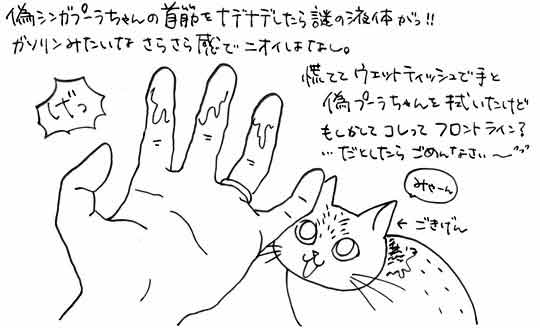 偽シンガプーラちゃんの首筋をナデナデしたら謎の液体がっ!!
ガソリンみたいな さらさら感で ニオイはなし。
慌ててウエットティッシュで手と
偽プーラちゃんを拭いたけど
もしかして コレって フロントライン?
…だとしたら ごめんなさい〜
げっ
みゃーん
←ごきげん